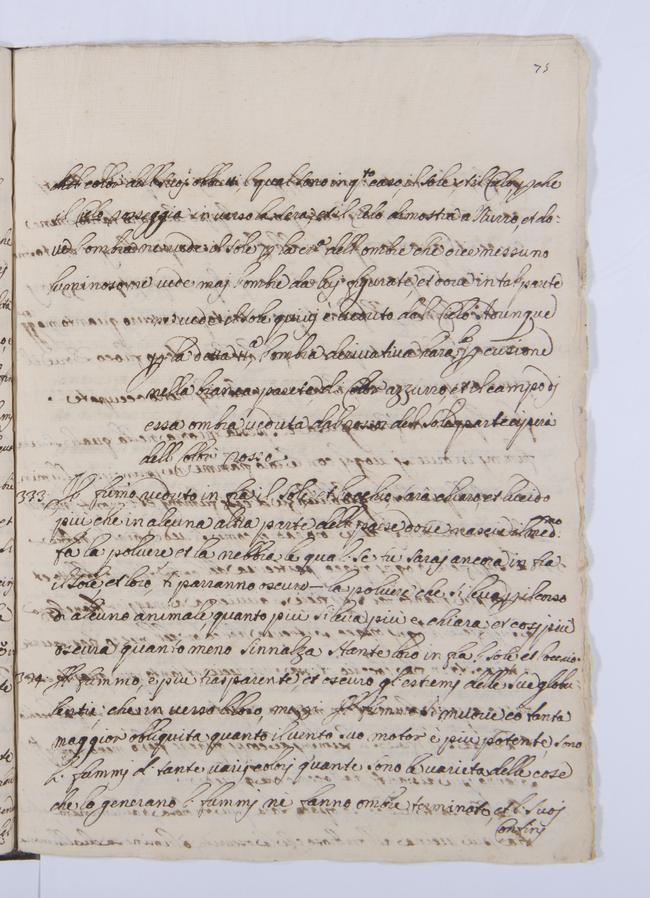 75
del color dell suoj obbietti, li quali sono in q.to caso, il sole et il cielo, p che
il sole rosseggia in verso la sera, et il cielo dimostra azzurro, et do-
ve l'ombra non vede il sole dell'ombre che dice nessuno
luminoso ne vede maj l'ombre da luj figurate, et dove in tal parte
vede il sole quivj è veduto dal cielo Adunque
p la detta l'ombra derivativa hara p cussione
nella bianca parete di color azzurro, et il campo dj
essa ombra veduta dal rossor del sole, partecipera
dell color rosso.
333 Il fumo veduto in fra il sole, et l'occhio, sara chiaro, et lucido
piu che in alcuna altra parte dell paese dove nascie il med.mo
fa la polvere et la nebbia le quali se tu saraj ancora in fra
il sole, et loro, ti parranno oscure— la polvere che si leva p il corso
di alcuno animale quanto piu si leva piu è chiara, et cosj piu
oscura quanto meno s'innalza stante loro in fra il sole et l'occio.
334 Il fummo è piu trasparente et oscuro gl'estremj delle sue globu-
lentie che in verso il loro, mezzi Il fummo si muove co tanta
maggior obbliquita quanto il vento suo motor è piu potente, sono
li fummj di tante varij colorj quante sono le varieta delle cose
che lo generano li fummj ne fanno ombre terminate et li suoj
confinj